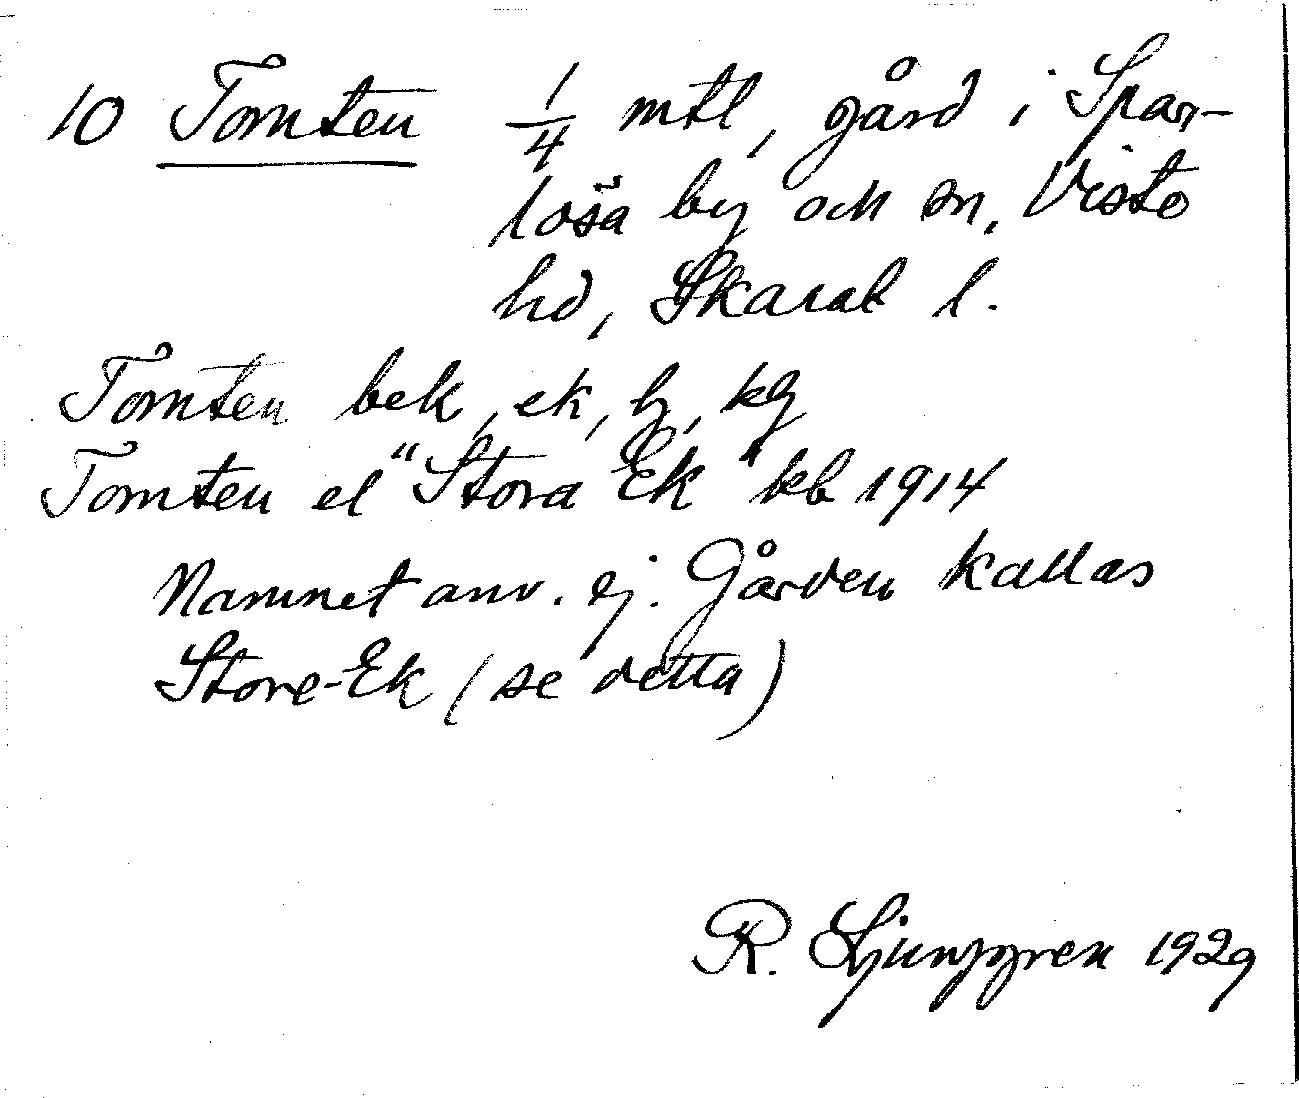 10 Tomten 1/4 mtl, gård i Spar-
lösa by och sn, Viste
hd, Skarab l.
Tomten bek, ek, h, kg
Tomten el "Stora Ek" kb 1914
Namnet anv. ej. Gården kallas
Store-Ek (se detta)
R. Ljunggren 1929